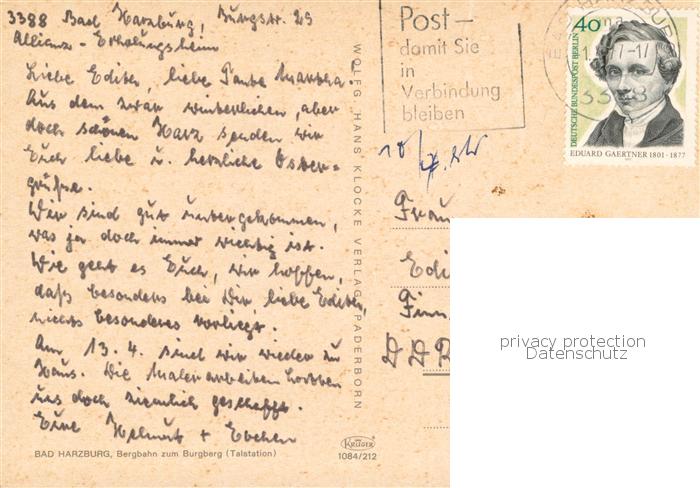 3388 Bad Harzburg, Burgstr. 25
Allianz - Erholungsheim
Liebe Edith, liebe Tante Martha!
Aus dem zwar winterlichen, aber
doch schönen Harz senden wir
Euch liebe u. herzliche Oster-
grüße.
Wir sind gut untergekommen,
was ja doch immer wichtig ist.
Wie geht es Euch, wir hoffen,
daß besonders bei Dir liebe Edith,
nichts besonderes vorliegt.
Am 13. 4. sind wir wieder zu
Haus. Die Malerarbeiten hatten
uns doch ziemlich geschafft.
Eure Helmut + Evchen
BAD HARZBURG, Bergbahn zum Burgberg (Talstation)
WOLFG. HANS KLOCKE VERLAG, PADERBORN
KRÜGER
1084/212
Post –
damit Sie
in
Verbindung
bleiben
40
DEUTSCHE BUNDESPOST BERLIN
EDUARD GAERTNER 1801 - 1877
10/4.
Frau
Edi
Finn
DDR
privacy protection
Datenschutz